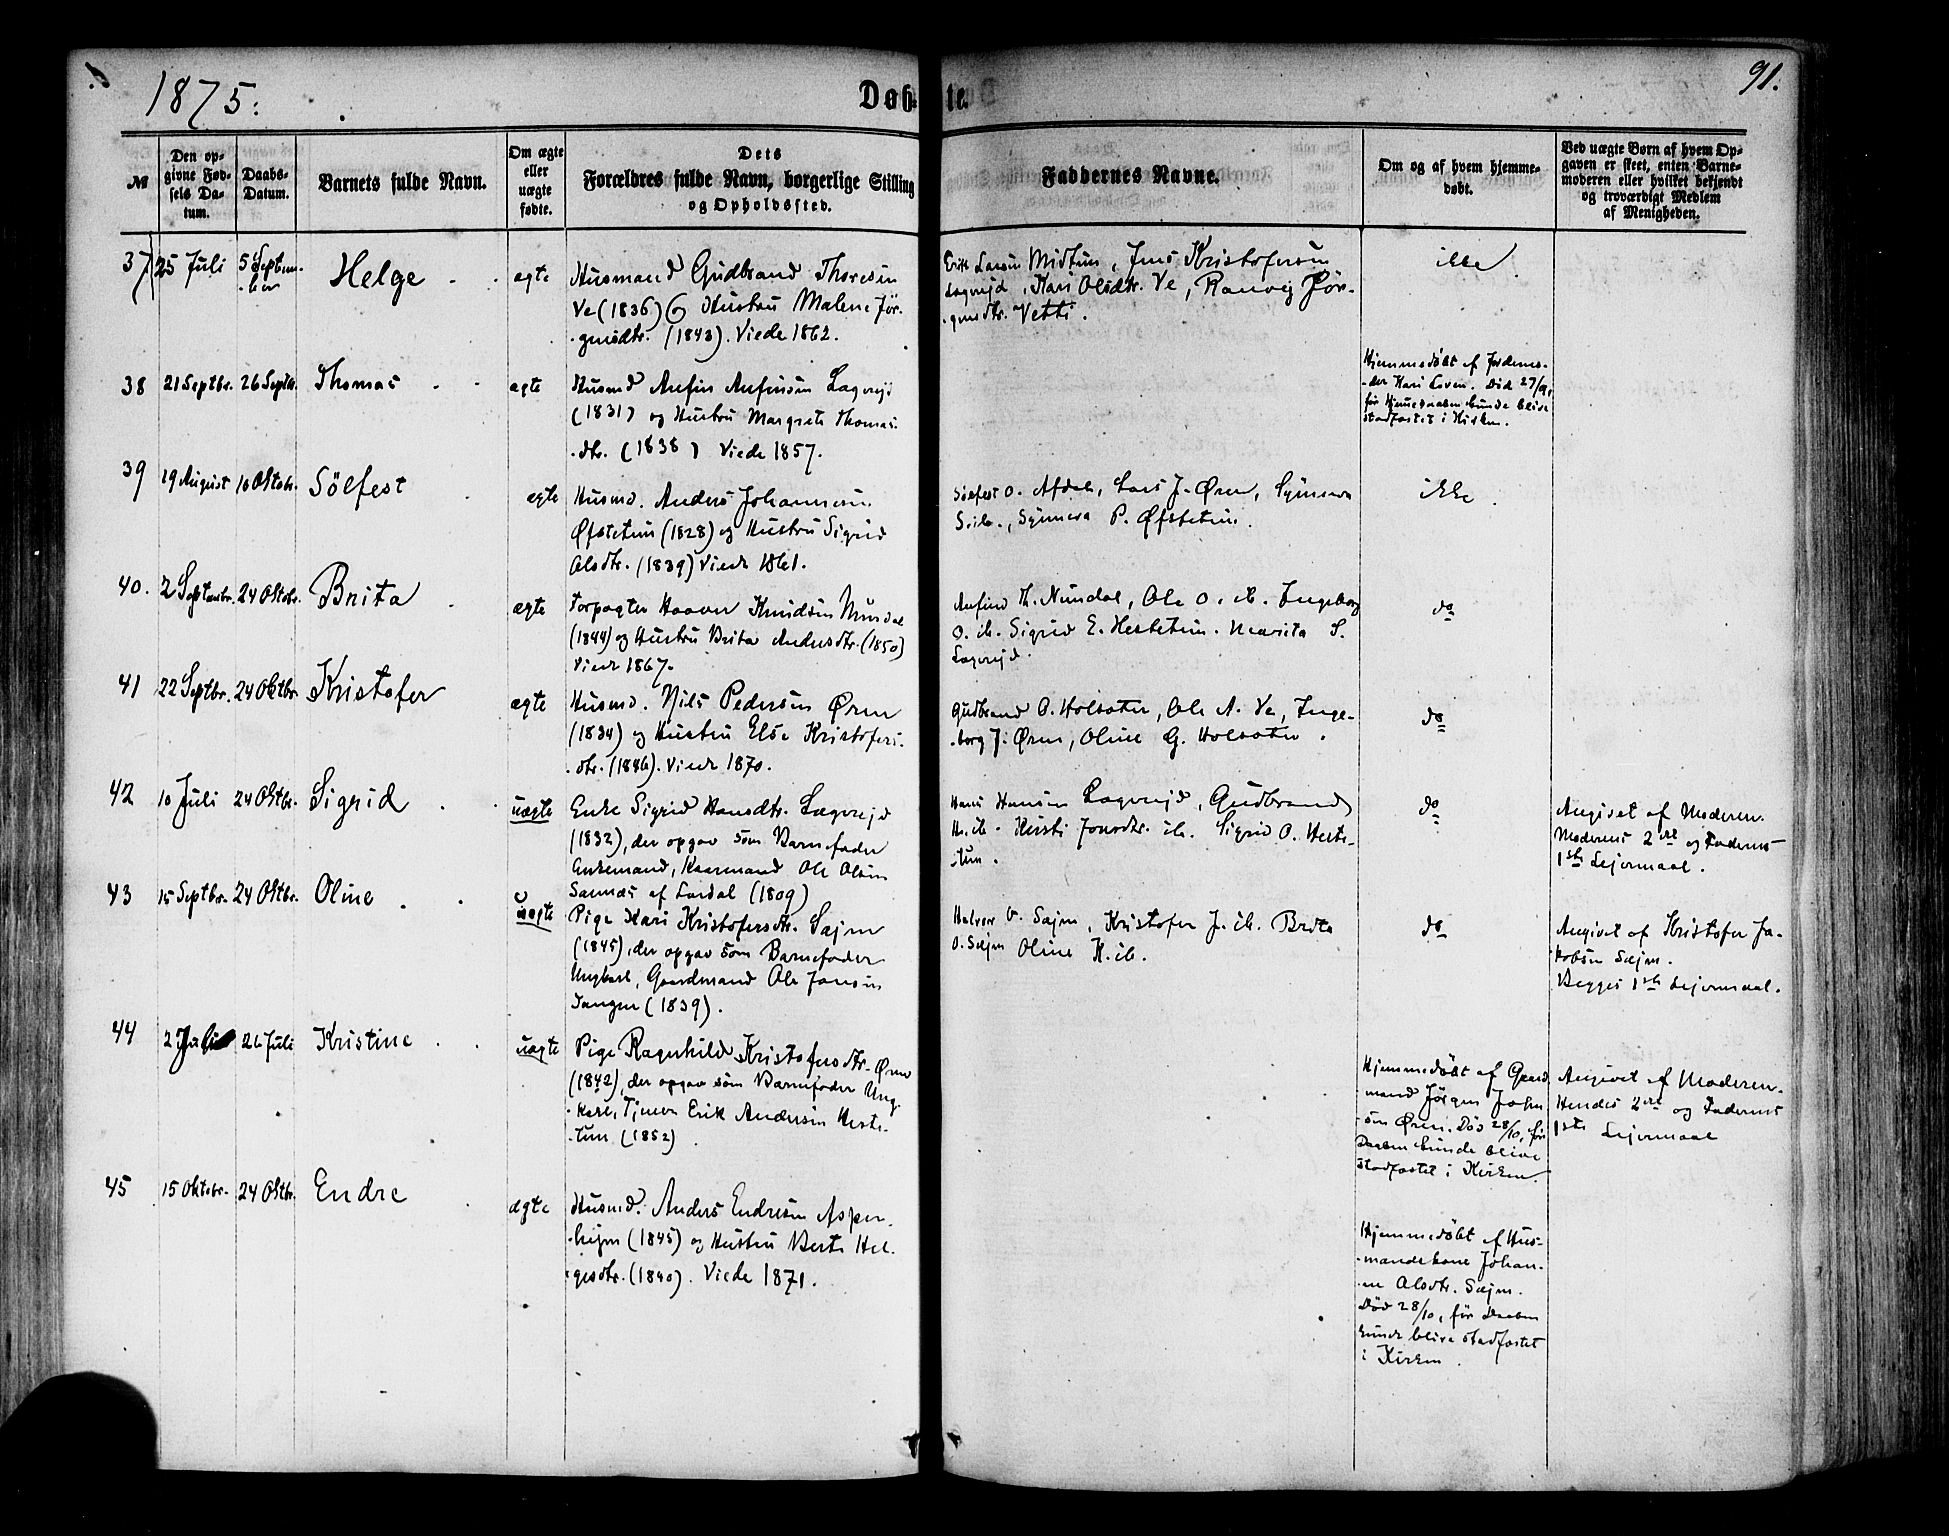 1875.
Døbte.
91.
№
Den op-
givne Fød-
sels Da-
tum.
Daabs-
Datum.
Barnets fulde Navn.
Om ægte
eller
uægte
fødte.
Dets
Forældres fulde Navn, borgerlige Stilling
og Opholdssted.
Faddernes Navne.
Om og af hvem hjemme-
døbt.
Ved uægte Børn af hvem Op-
gaven er skeet, enten Barne-
moderen eller hvilket bekjendt
og troværdigt Medlem
af Menigheden.
37 25 Juli 5 Septem-
ber Helge ægte
Husmand Gudbrand Thoresen
Ve (1836) og Hustru Malene Jør-
gensdtr. (1843). Viede 1862.
Erik Larsen Midtun, Jens Kristofersen
Lægreid, Kari Olsdtr. Ve, Ranveig Jør-
gensdtr. Vetti.
ikke.
38 21 Septbr. 26 Septbr. Thomas ægte
Husmd Anfin Anfinsen Lægreid
(1831) og Hustru Margrete Thomas-
dtr. (1838) Viede 1857.
Hjemmedøbt af Jordemo-
der Kari Loven. Død 27/9,
før Hjemmedaaben kunde blive
stadfæstet i Kirken.
39 19 August 10 Oktobr. Sølfest ægte
Husmd. Anders Johannesen
Øfstetun (1828) og Hustru Sigrid
Olsdtr. (1839) Viede 1861.
Sølfest O. Afdal, Lars J. Øren, Synneva
S. ib., Synneva P. Øfstetun.
ikke.
40. 2 Septembr. 24 Oktobr. Brita ægte
Forpagter Haavar Knudsen Mundal
(1844) og Hustru Brita Andersdtr. (1850)
Viede 1867.
Anfind Th. Nundal, Ole O. ib. Ingeborg
O. ib. Sigrid E. Hestetun. Marita S.
Lægreid.
do
41 22 Septbr. 24 Oktbr. Kristofer ægte
Husmd. Nils Pedersen Øren
(1834) og Hustru Else Kristofers-
dtr. (1846). Viede 1870.
Gudbrand O. Holsæter, Ole A. Ve, Inge-
borg J. Øren, Oline G. Holsæter.
do
42 10 Juli 24 Oktbr. Sigrid uægte
Enke Sigrid Hansdtr. Lægreid
(1832), der opgav som Barnefader
Enkemand, Kaarmand Ole Olsen
Sannæs af Lærdal (1809)
Hans Hansen Lægreid, Gudbrand
H. ib. Kirsti Jonsdtr. ib. Sigrid O. Heste-
tun.
do
Angivet af Moderen.
Moderens 2det og Faderens
1ste Leiermaal.
43 15 Septbr. 24 Oktbr. Oline uægte
Pige Kari Kristofersdtr. Sæjm
(1845), der opgav som Barnefader
Ungkarl, Gaardmand Ole Jonsen
Tangen (1839).
Halvor O. Sæjm, Kristofer J. ib. Brita
O. Sæjm Oline K. ib.
do
Angivet af Kristofer Ja-
kobsen Sæjm.
Begges 1ste Lejermaal.
44 2 Juli 26 Juli Kristine uægte
Pige Ragnhild Kristofersdtr. Øren
(1842), der opgav som Barnefader Ung-
karl, Tjener Erik Andersen Heste-
tun (1852).
Hjemmedøbt af Gaard-
mand Jørgen John-
sen Øren. Død 28/10, før
Daaben kunde blive
stadfæstet i Kirken.
Angivet af Moderen.
Hendes 2det og Faderens
1ste Lejermaal
45 15 Oktobr. 24 Oktbr. Endre ægte
Husmd. Anders Endresen Asper-
hejm (1845) og Hustru Berte Hel-
gesdtr. (1840). Viede 1871.
Hjemmedøbt af Hus-
mandskone Johan-
ne Olsdtr. Sæjm.
Død 28/10, før Daaben
kunde blive stadfæstet
i Kirken.